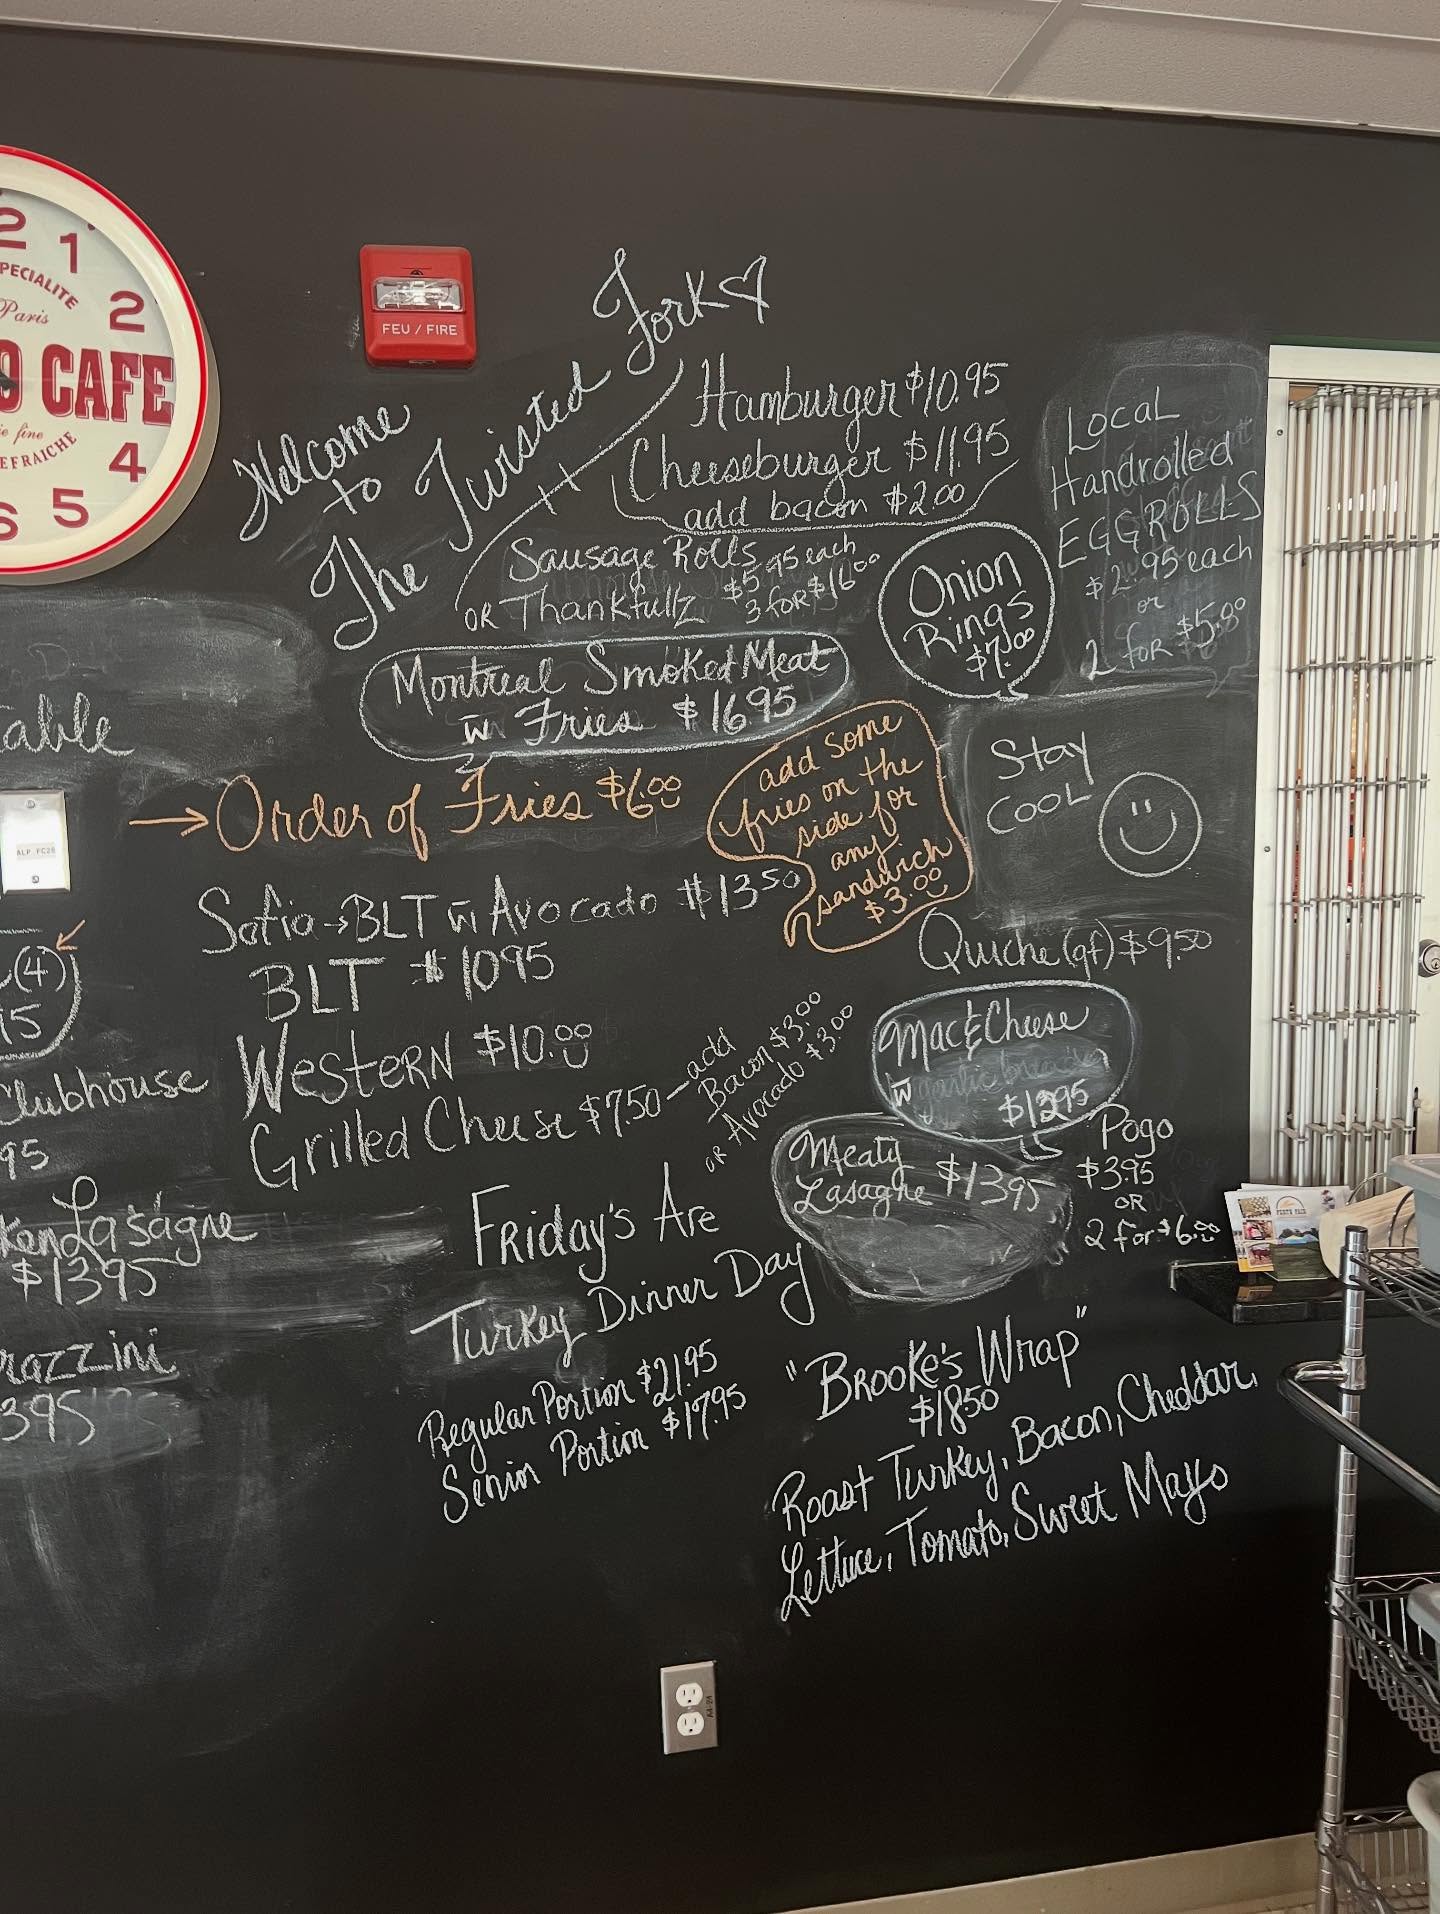 2
1
PECIALITE
Paris
2
CAFE
fine
EFRAICHE
4
5
6
FEU / FIRE
Welcome
to
The Twisted Fork
Hamburger $10.95
Cheeseburger $11.95
add bacon $2.00
Sausage Rolls $5.95 each
OR Thankfullz 3 for $16.00
Montreal Smoked Meat
w Fries $16.95
Onion
Rings
$7.00
Local
Handrolled
EGGROLLS
$2.95 each
or
2 for $5.00
→ Order of Fries $6.00
add some
fries on the
side for
any
sandwich
$3.00
Stay
Cool
Sofia → BLT w Avocado $13.50
BLT $10.95
Western $10.00
Grilled Cheese $7.50 — add
Bacon $3.00
OR Avocado $3.00
Quiche (gf) $9.50
Mac & Cheese
w garlic bread
$12.95
Meaty
Lasagne $13.95
Pogo
$3.95
OR
2 for $6.00
Friday's Are
Turkey Dinner Day
Regular Portion $21.95
Senior Portion $17.95
"Brooke's Wrap"
$18.50
Roast Turkey, Bacon, Cheddar,
Lettuce, Tomato, Sweet Mayo
able
ALP FC28
(4)
5
Clubhouse
95
ken Lasagne
$13.95
razzini
3.95